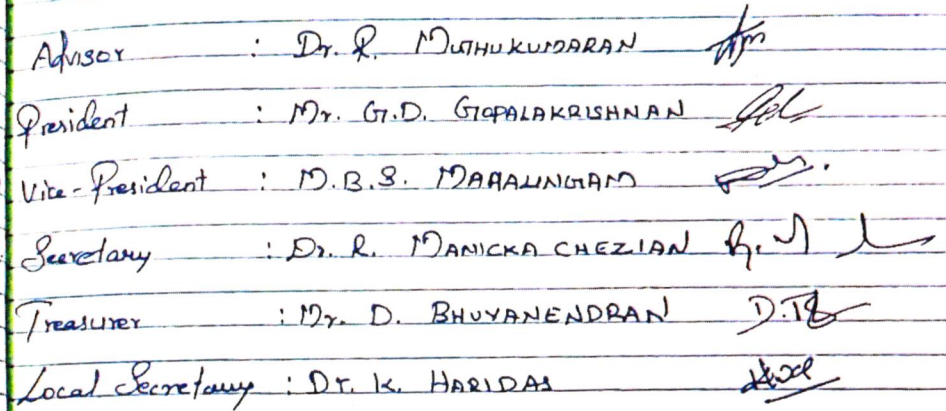 Advisor : Dr. R. MUTHUKUMARAN
President : Mr. G.D. GOPALAKRISHNAN
Vice-President : M.B.S. MAHALINGAM
Secretary : Dr. R. MANICKA CHEZIAN
Treasurer : Mr. D. BHUVANENDRAN
Local Secretary : Dr. K. HARIDAS